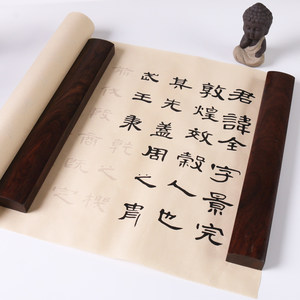 君諱全字景完
敦煌效穀人也
其先蓋周之胄
武王秉